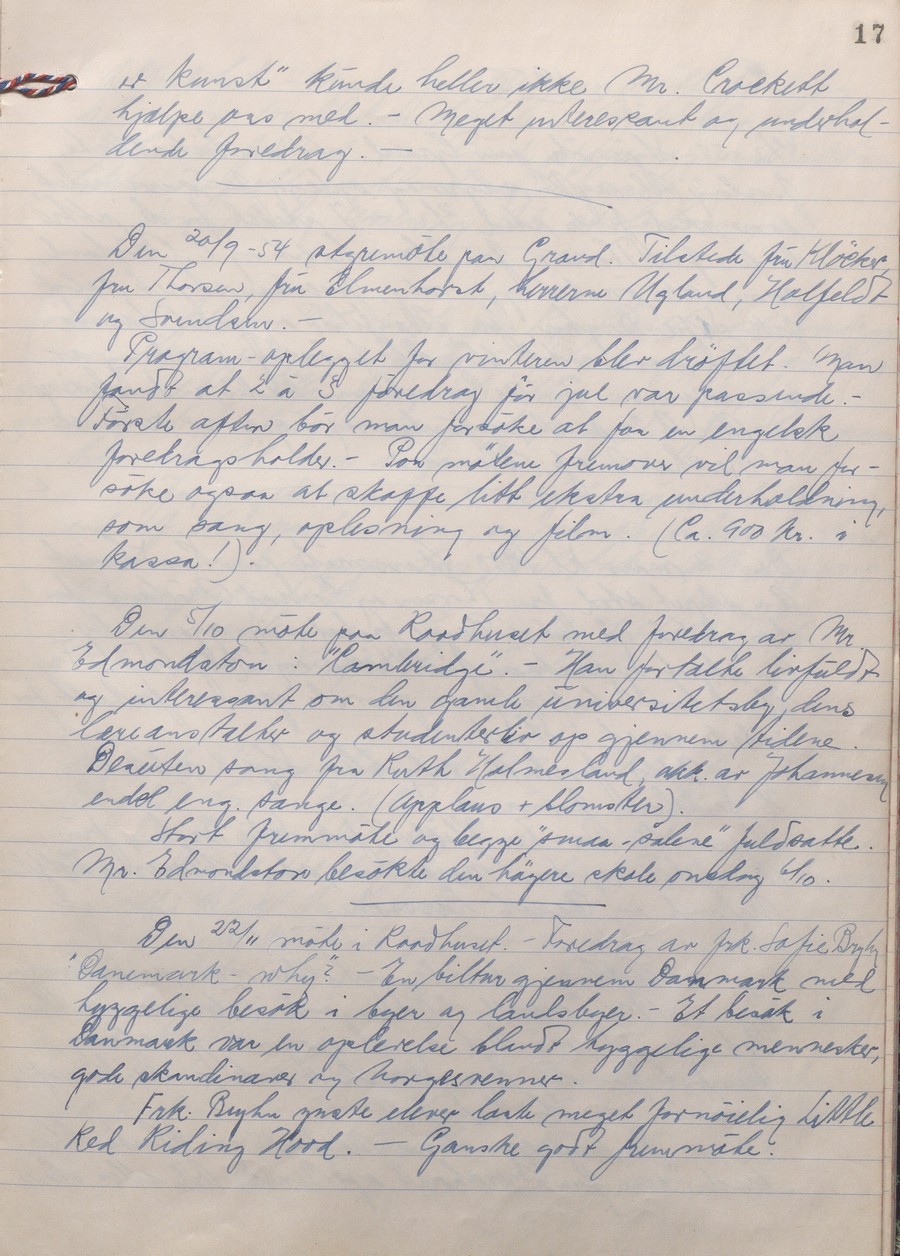 17
er kunst" kunde heller ikke Mr. Crockett
hjælpe oss med. - Meget interessant og underhol-
dende foredrag. -
Den 20/9-54 styremöte paa Grand. Tilstede fru Klöcker,
fru Thorsen, fru Elmenhorst, herrerne Ugland, Holfeldt
og Svendsen. -
Program-oplegget for vinteren blev dröftet. Man
fandt at 2 à 3 foredrag för jul var passende. -
Förste aften bör man forsöke at faa en engelsk
foredragsholder. - Paa mötene fremover vil man for-
söke ogsaa at skaffe litt ekstra underholdning,
som sang, oplesning og film. (Ca. 900 kr. i
kassa!).
Den 5/10 möte paa Raadhuset med foredrag av Mr.
Edmondston: "Cambridge". - Han fortalte livfuldt
og interessant om den gamle universitetsby, dens
læreanstalter og studenterliv op gjennem tidene.
Desuten sang fru Ruth Holmesland, akk. av Johannesen
endel eng. sange. (Applaus + blomster).
Stort fremmöte og begge "smaa-salene" fuldsatte.
Mr. Edmondston besökte den högere skole onsdag 6/10.
Den 22/11 möte i Raadhuset. - Foredrag av frk. Sofie Bryhn
"Danemark - why"? - En biltur gjennem Danmark med
hyggelige besök i byer og landsbyer. - Et besök i
Danmark var en oplevelse blandt hyggelige mennesker,
gode skandinaver og Norgesvenner.
Frk. Bryhn yngste elever leste meget fornöielig Little
Red Riding Hood. - Ganske godt fremmöte.